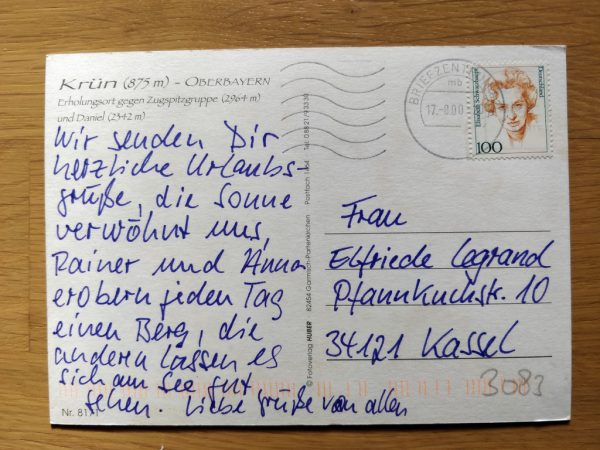 Krün (875 m) - OBERBAYERN
Erholungsort gegen Zugspitzgruppe (2964 m)
und Daniel (2342 m)
Wir senden Dir
herzliche Urlaubs-
grüße, die Sonne
verwöhnt uns,
Rainer und Anna
erobern jeden Tag
einen Berg, die
anderen lassen es
sich am See gut
gehen. Liebe Grüße von allen
Nr. 8171
© Fotoverlag HUBER 82454 Garmisch-Partenkirchen Postfach Tel. 08821/
BRIEFZEN
mb
17.-8.00
Elisabeth Schwarzhaupt
Deutschland
100
Frau
Elfriede Legrand
Pfannkuchstr. 10
34121 Kassel
3083